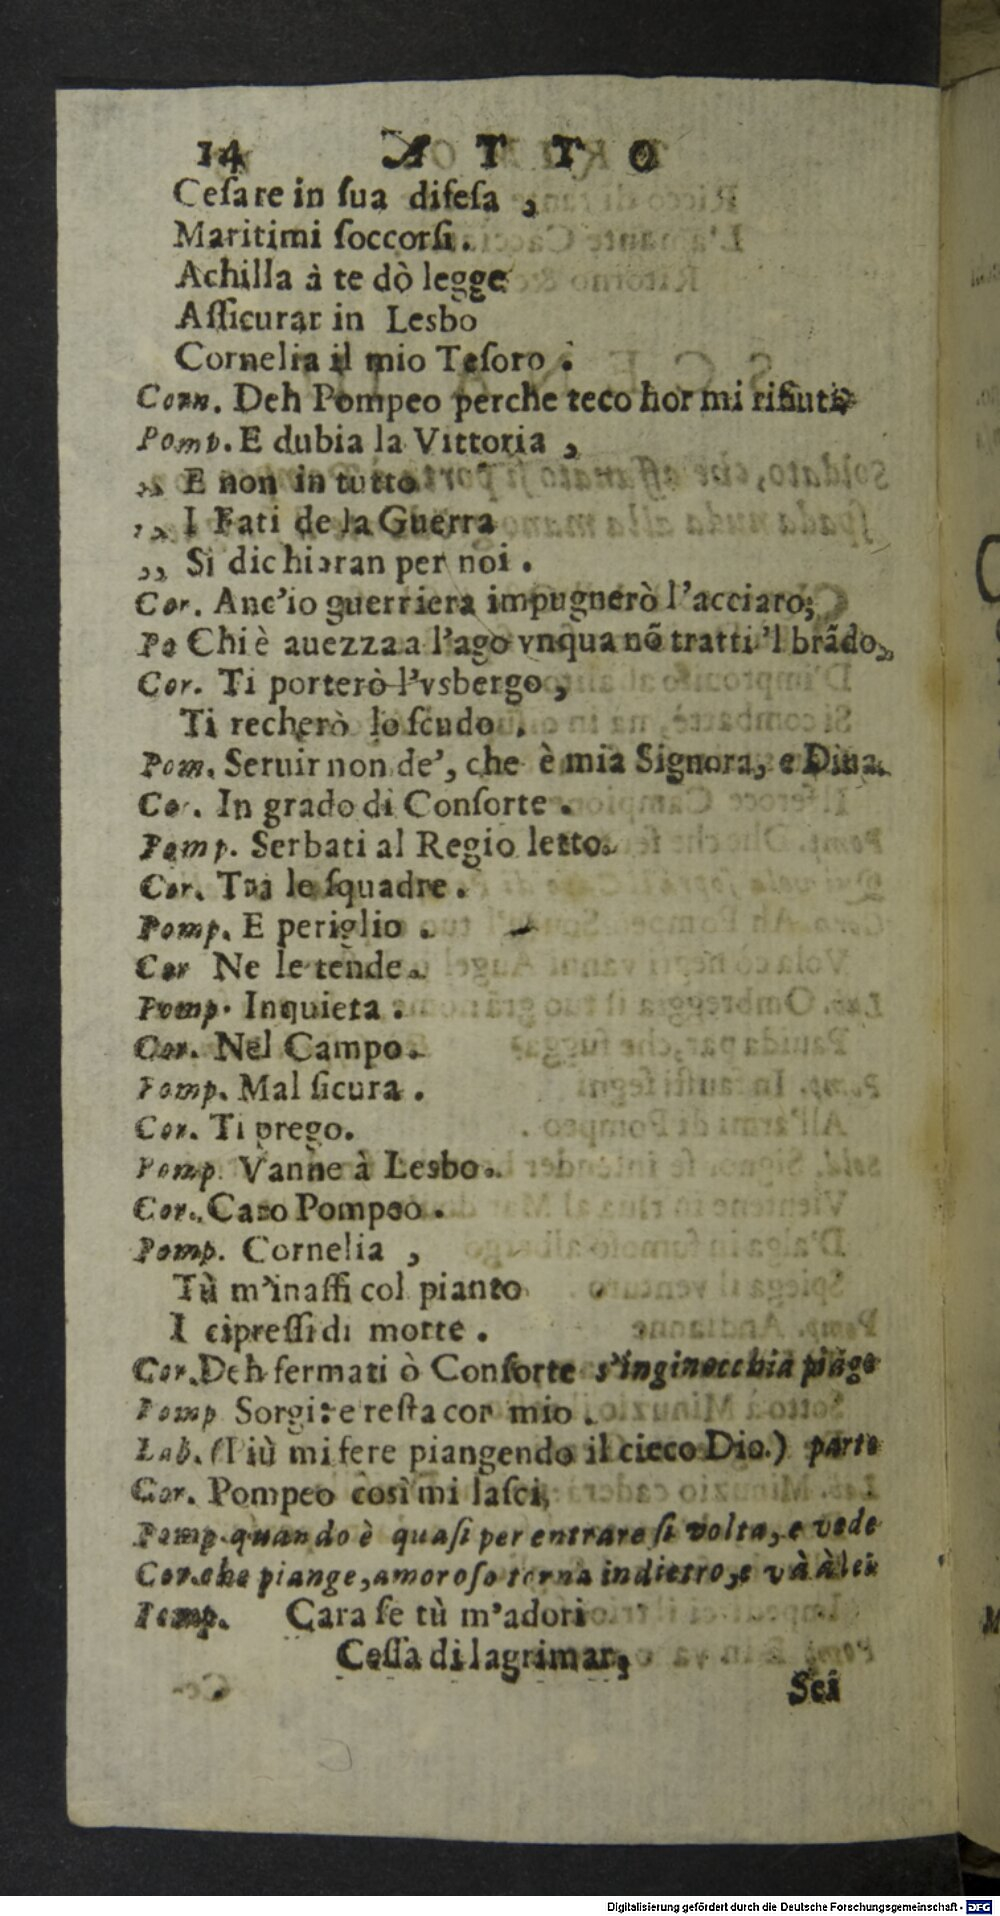 14 ATTO
Ceſare in ſua difeſa ,
Maritimi ſoccorſi.
Achilla à te dò legge
Aſſicurar in Lesbo
Cornelia il mio Teſoro.
Corn. Deh Pompeo perche teco hor mi rifiuti?
Pomp. E dubia la Vittoria ,
,, E non in tutto
,, I Fati de la Guerra
,, Si dichiaran per noi .
Cor. Anc'io guerriera impugnerò l'acciaro;
Po Chi è auezza a l'ago vnqua nõ tratti 'l brãdo,
Cor. Ti porterò l'vsbergo ,
Ti recherò lo ſcudo .
Pom. Seruir non de', che è mia Signora, e Diua.
Cor. In grado di Conſorte .
Pomp. Serbati al Regio letto.
Cor. Tra le ſquadre .
Pomp. E periglio .
Cor Ne le tende.
Pomp. Inquieta .
Cor. Nel Campo.
Pomp. Mal ſicura .
Cor. Ti prego.
Pomp. Vanne à Lesbo.
Cor. Caro Pompeo .
Pomp. Cornelia ,
Tù m'inaffi col pianto
I cipreſſi di morte .
Cor. Deh fermati ò Conſorte s'inginocchia piāge
Pomp Sorgi: e reſta cor mio .
Lab. (Più mi fere piangendo il cieco Dio.) parte
Cor. Pompeo così mi laſci,
Pomp. quando è quaſi per entrare ſi volta, e vede
Cor. che piange, amoroſo torna indietro, e và à lei
Pomp. Cara ſe tù m'adori
Ceſſa di lagrimar,
Sei
Digitalisierung gefördert durch die Deutsche Forschungsgemeinschaft - DFG